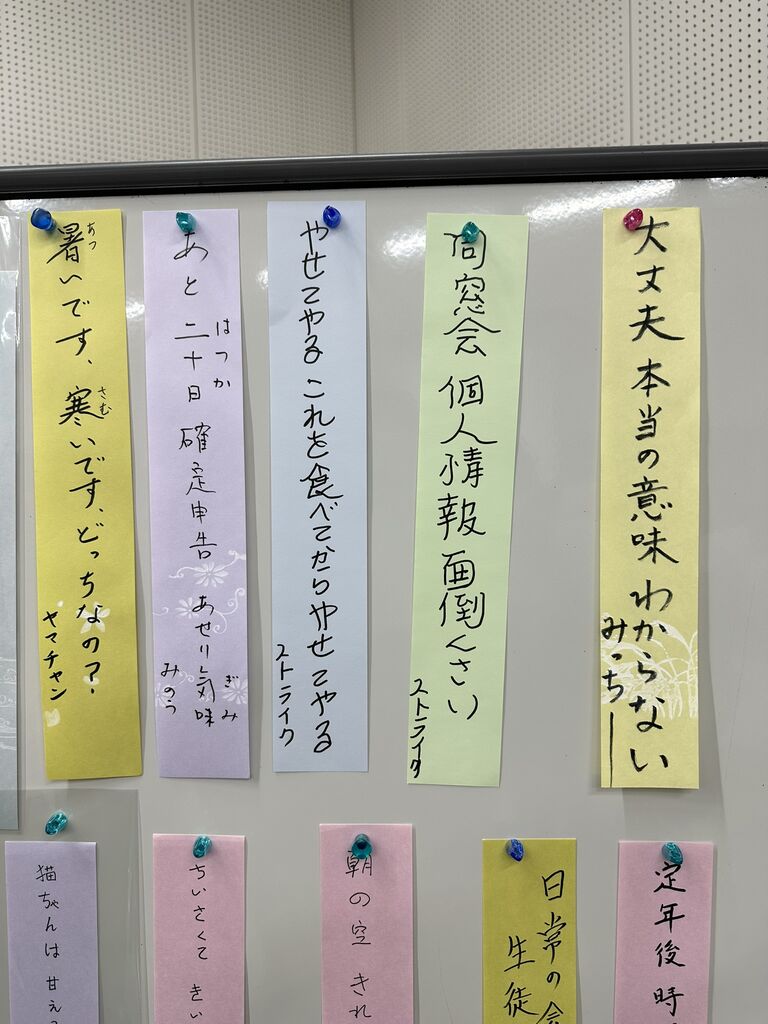 大丈夫 本当の意味 わからない
みっちー
同窓会 個人情報 面倒くさい
ストライク
やせてやる これを食べてからやせてやる
ストライク
あと 二十日 確定申告 あせり気味
はつか
ぎみ
みのう
暑いです、寒いです、どっちなの?
あつ
さむ
ヤマチャン
定年後 時
日常の会
生徒
朝の空 きれ
ちいさくて きい
猫ちゃんは 甘え